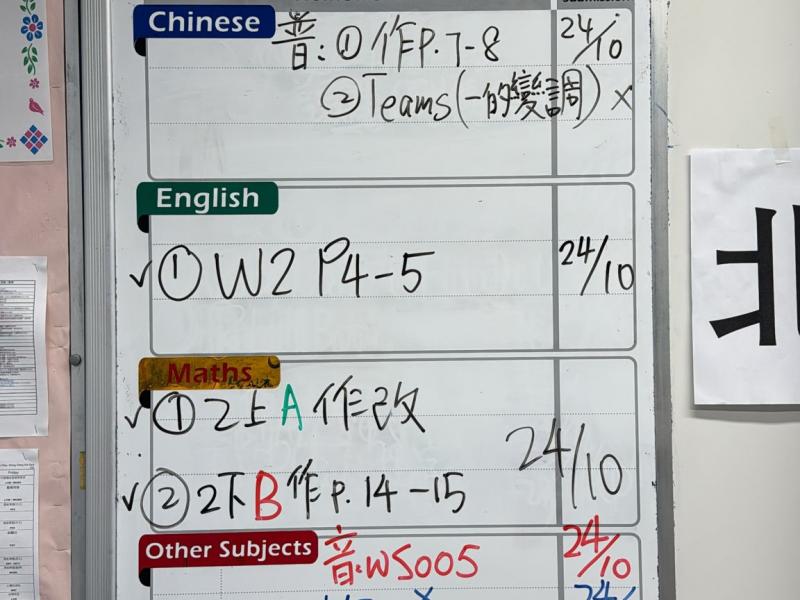 Chinese
普:①作P.7-8 24/10
②Teams(一的變調) ×
English
✓①W2 P4-5 24/10
Maths
✓①2上A作改
✓②2下B作p.14-15 24/10
Other Subjects 音:WS005 24/10
24/
北